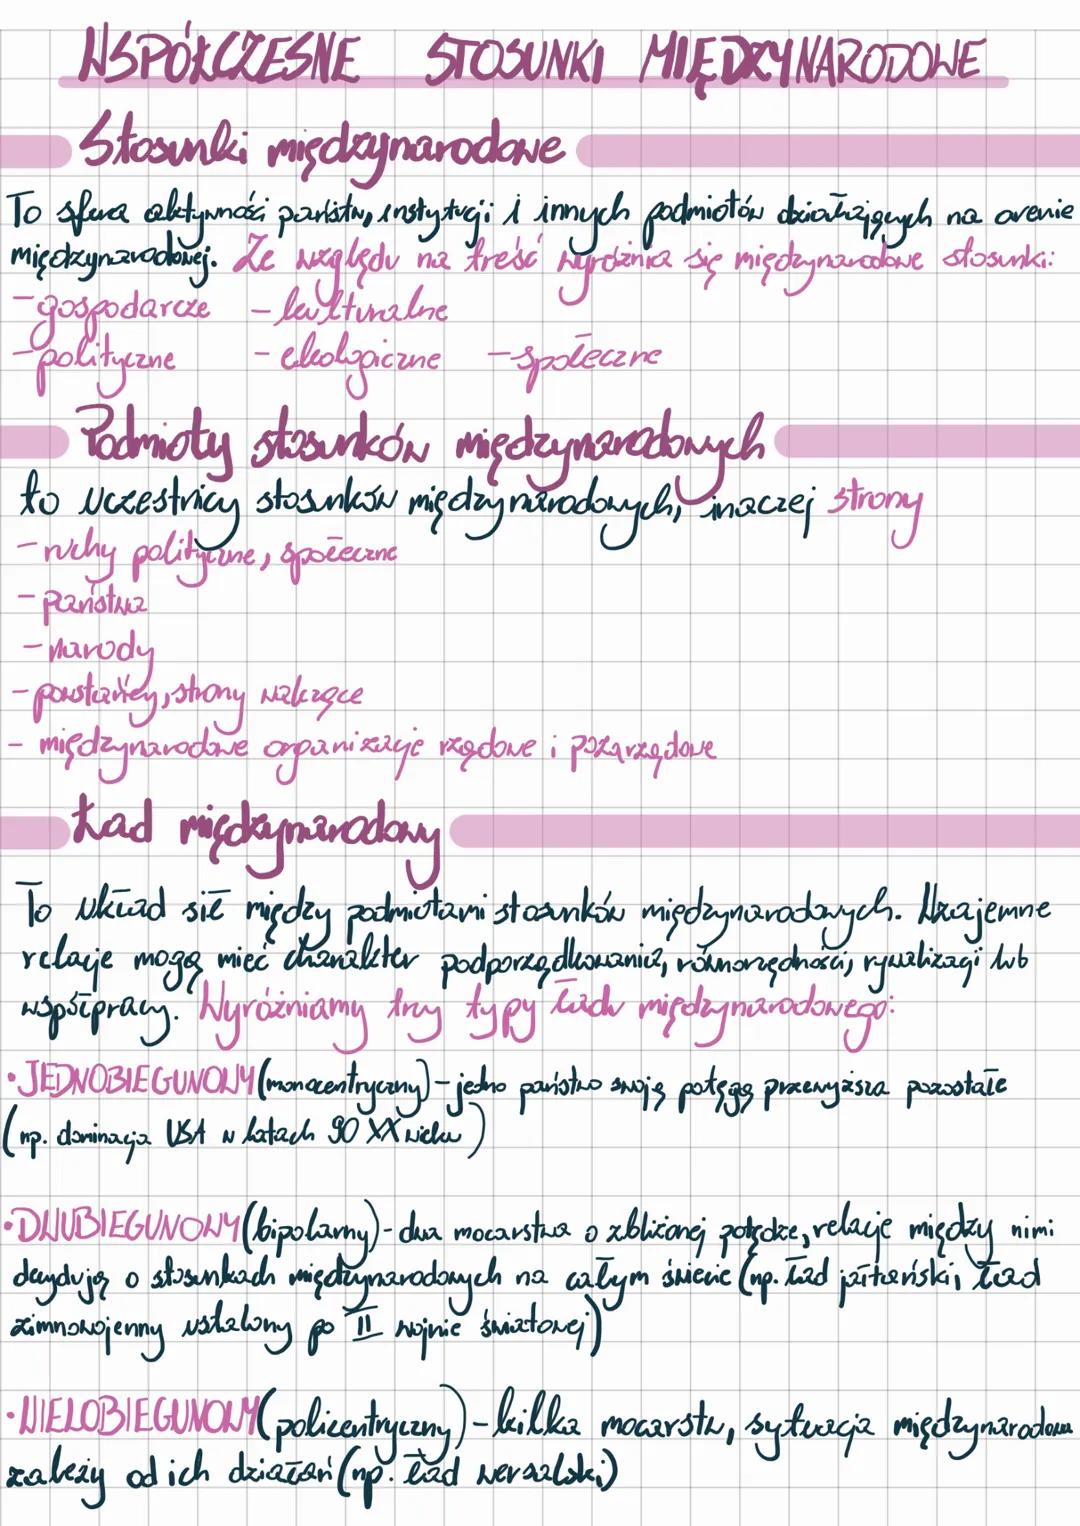 WSPÓŁCZESNE STOSUNKI MIĘDZYNARODOWE
Stosunki międzynarodowe
To sfera aktywności państw, instytucji i innych podmiotów działających na arenie
międzynarodowej. Ze względu na treść wyróżnia się międzynarodowe stosunki:
- gospodarcze - kulturalne
- polityczne - ekologiczne - społeczne
Podmioty stosunków międzynarodowych
to uczestnicy stosunków międzynarodowych, inaczej strony
- ruchy polityczne, społeczne
- państwa
- narody
- powstańcy, strony walczące
- międzynarodowe organizacje rządowe i pozarządowe
Ład międzynarodowy
To układ sił między podmiotami stosunków międzynarodowych. Wzajemne
relacje mogą mieć charakter podporządkowania, równorzędności, rywalizacji lub
współpracy. Wyróżniamy trzy typy ładu międzynarodowego:
• JEDNOBIEGUNOWY (monocentryczny) - jedno państwo swoją potęgą przewyższa pozostałe
(np. dominacja USA w latach 90 XX wieku)
• DWUBIEGUNOWY (bipolarny) - dwa mocarstwa o zbliżonej potędze, relacje między nimi
decydują o stosunkach międzynarodowych na całym świecie (np. ład jałtański, ład
zimnowojenny ustalony po II wojnie światowej)
• WIELOBIEGUNOWY (policentryczny) - kilka mocarstw, sytuacja międzynarodowa
zależy od ich działań (np. ład wersalski)